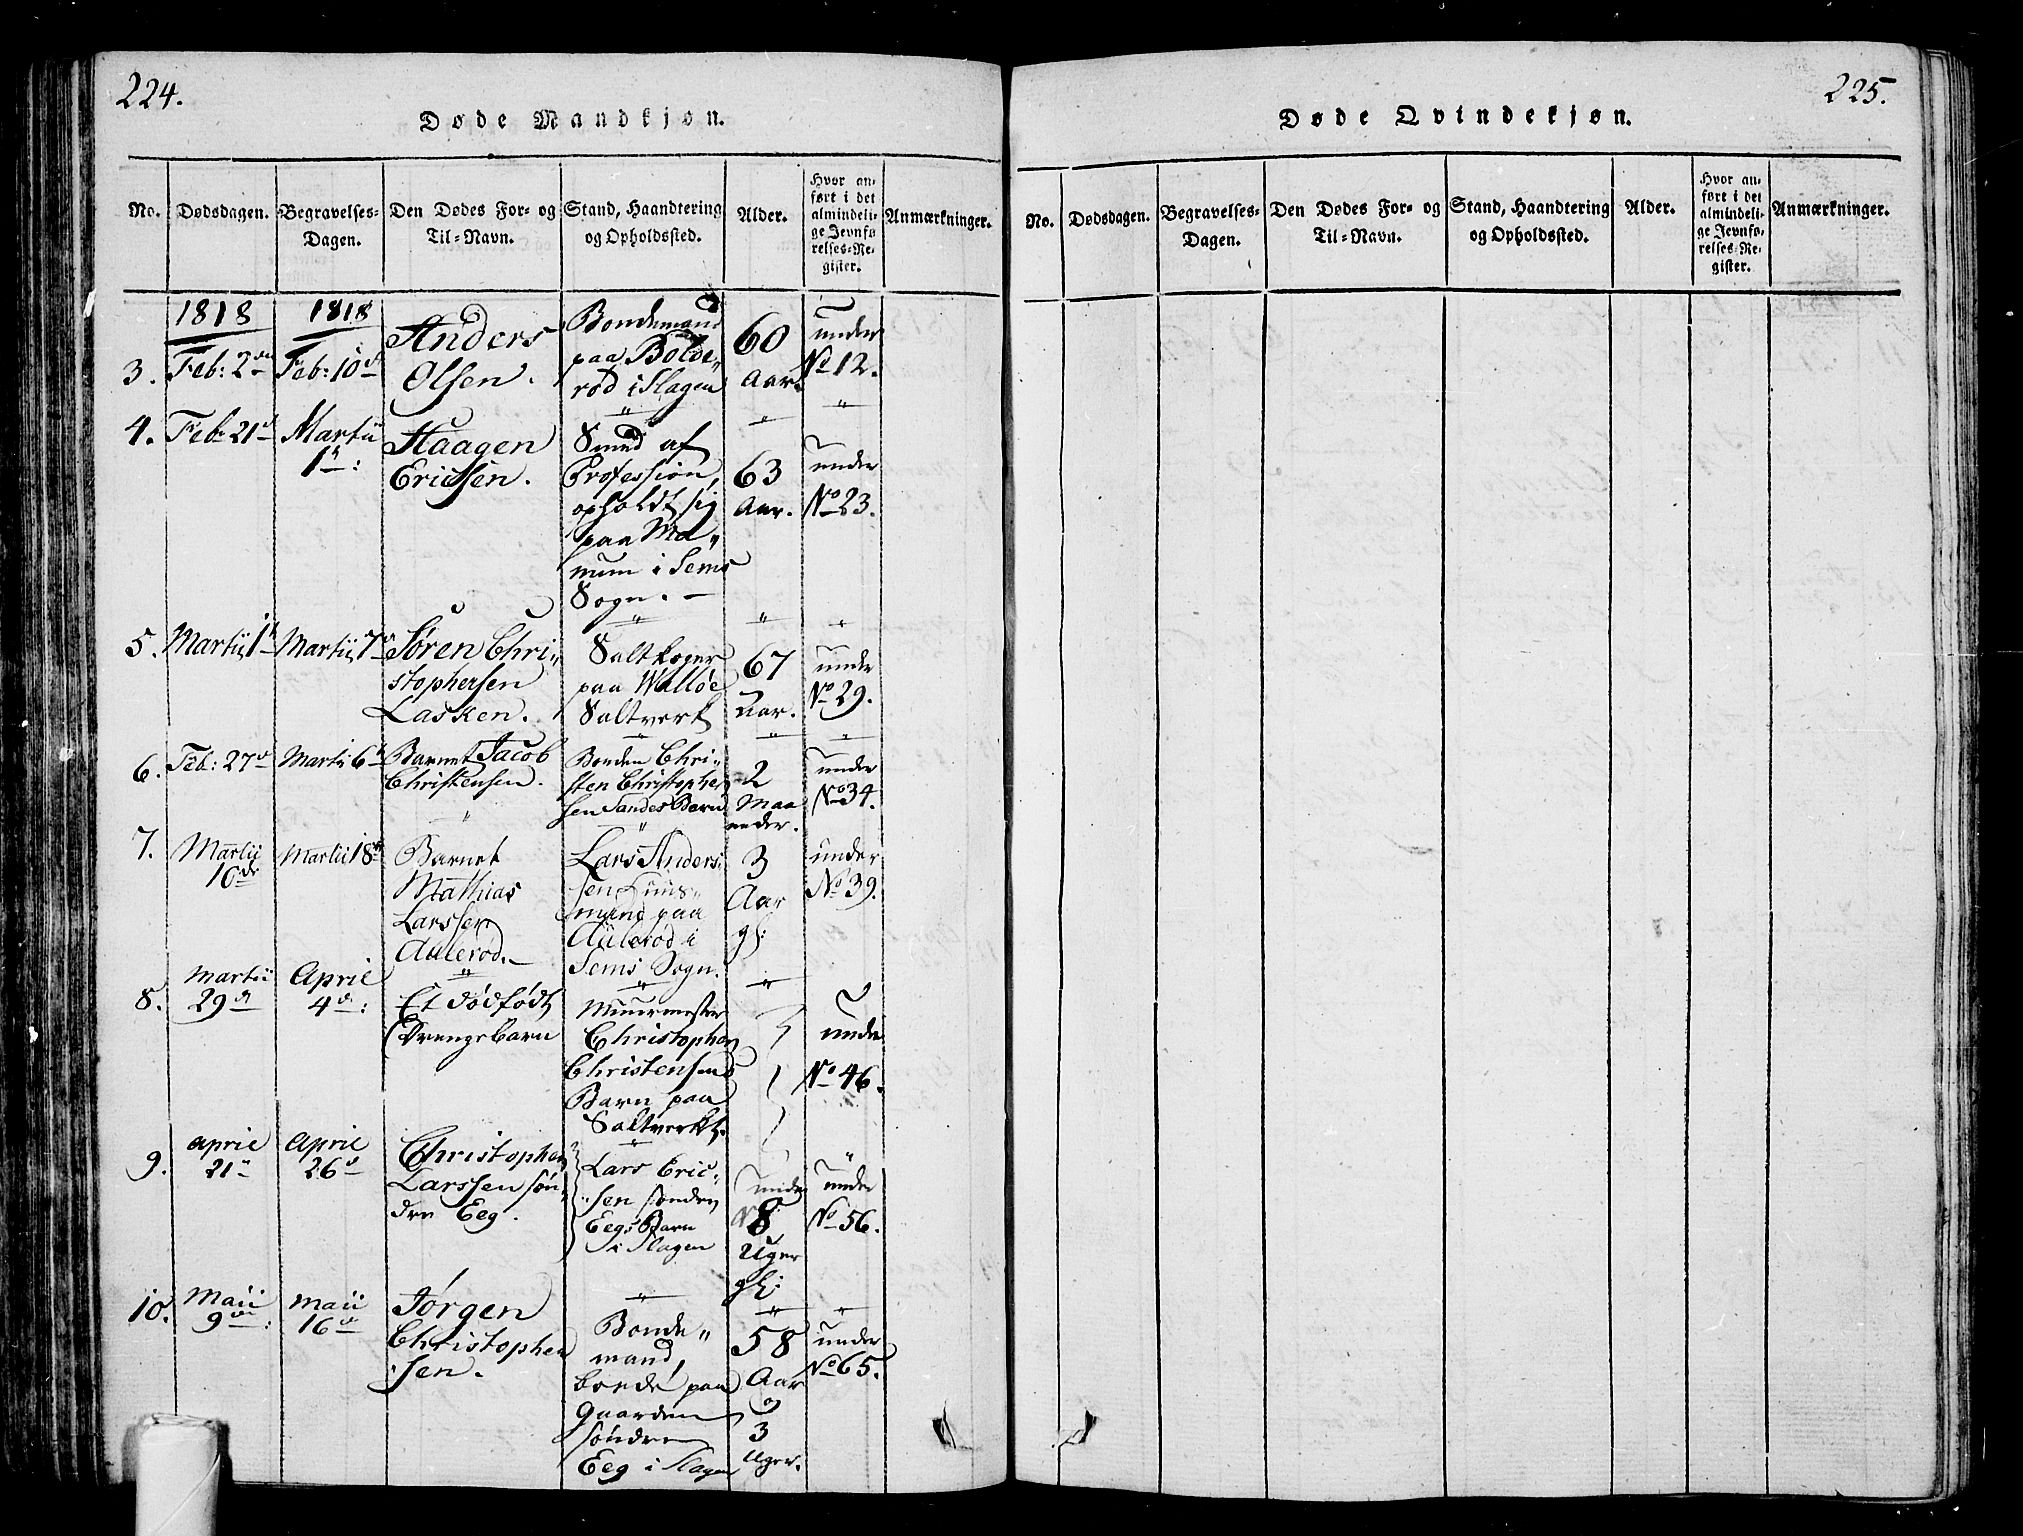 224.
Døde Mandkjøn.
No. Dødsdagen. Begravelses-Dagen. Den Dødes For- og Til-Navn. Stand, Haandtering og Opholdssted. Alder. Hvor anført i det almindelige Jevnførelses-Register. Anmærkninger.
1818 1818
3. Feb: 2den Feb: 10de Anders Olsen. Bondemand paa Bolderød i Slagen 60 Aar. under No 12.
4. Feb: 21de Martii 1te: Haagen Ericksen. Smed af Profession, opholdt sig paa Manum i Sems Sogn. 63 Aar. under No 23.
5. Martii 1te Martii 7de Søren Christophersen Lasken. Saltkoger paa Walløe Saltverk 67 Aar. under No 29.
6. Feb: 27de Martii 6te Barnet Jacob Christensen. Bonden Christen Christophersen Sandes Barn 2 Maaneder. under No 34.
7. Martii 10de Martii 18de Barnet Mathias Larssen Aulerød. Lars Anderssen Huusmand paa Aulerød i Sems Sogn. 3 Aar gl: under No 39.
8. Martii 29de April 4de: Et dødfødt Drengebarn Muurmester Christopher Christensens Barn paa Saltverket. under No 46.
9. April 21de April 26de Christopher Larssen søndre Eeg. Lars Ericsen søndre Eegs Barn i Slagen under 8 Uger gl: under No 56.
10. Maii 9de: Maii 16de Jørgen Christophersen. Bondemand, boede paa Gaarden søndre Eeg i Slagen 58 Aar og 3 Uger. under No 65.
225.
Døde Qvindekjøn.
No. Dødsdagen. Begravelses-Dagen. Den Dødes For- og Til-Navn. Stand, Haandtering og Opholdssted. Alder. Hvor anført i det almindelige Jevnførelses-Register. Anmærkninger.